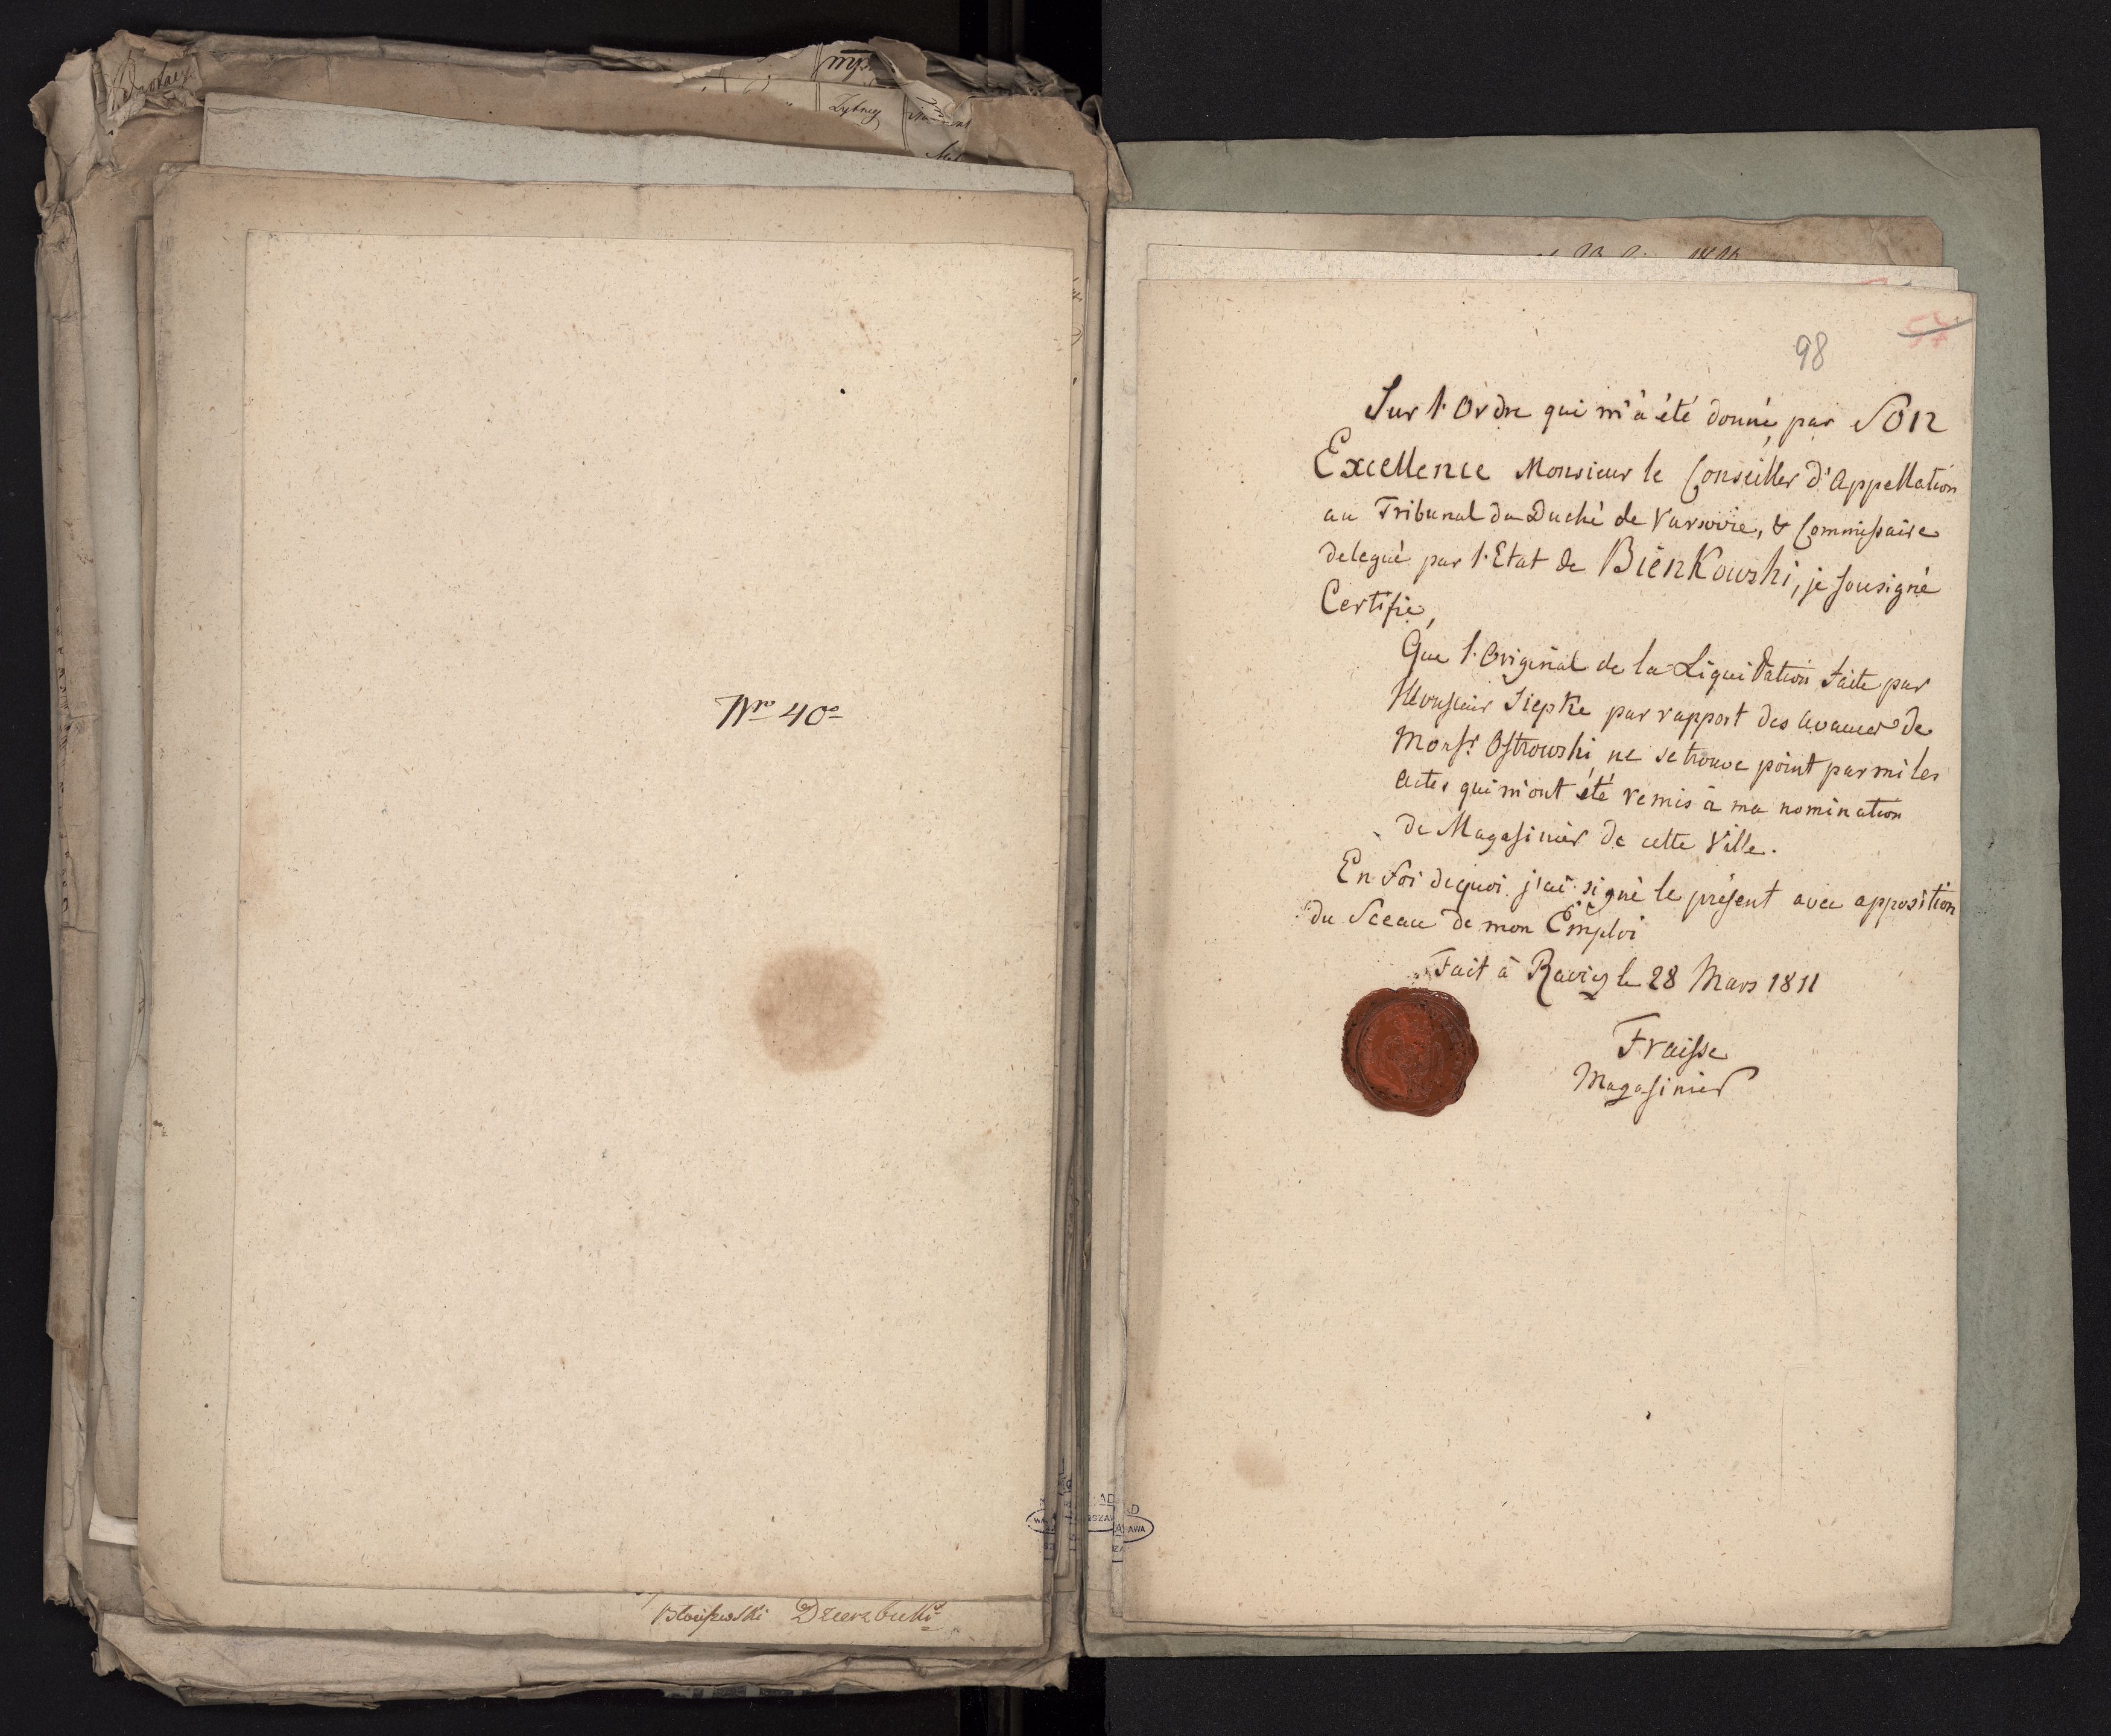 Zybrey
Nro 40o
Dzierzbicki
98
57
Sur l'Ordre qui m'à été donné par SON
Excellence Monsieur le Conseiller d'Appellation
au Tribunal du Duché de Varsovie, & Commissaire
delegué par l'Etat de BienKowski, je sousigné
Certifie,
Que l'Original de la Liquidation faite par
Monsieur Siepke par rapport des avances de
Monsr. Ostrowski ne se trouve point parmi les
Actes qui m'ont été remis à ma nomination
de Magasinier de cette Ville.
En foi dequoi j'ai signé le présent avec apposition
du Sceau de mon Emploi
Fait à Ravicz le 28 Mars 1811
Fraisse
Magasinier